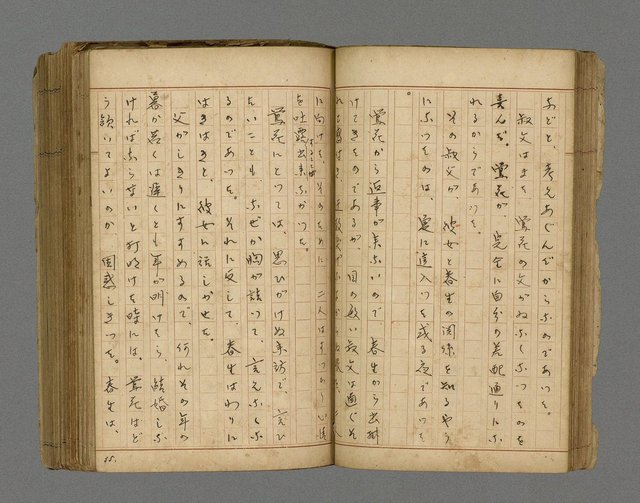 などと、考えあぐんだからなのであつた。
叔父は又、鶯花の父がゐなくなつたのを
喜んだ。鶯花が、完全に自分の支配通りにな
れるからであつた。
その叔父が、彼女と春生の関係を知るやう
になつたのは、夏に這入つた或る夜であつた
。
鶯花から返事が来ないので、春生から出掛
けてきたのであるが、目の敏い叔父は直ぐそ
に向けた。そのために二人はまつたく心持
を吐露出来なかつた。
鶯花にとつては、思ひがけぬ来訪で、言ひ
たいこともなぜか胸が詰つて、言えなくな
るのであつた。それに反して、春生はわりに
はきはきと、彼女に話しかせた。
父がしきりにすすめるので、何れその年の
暮か若くは遅くとも年が明けたら、結婚しな
ければならないと打明けた時には、鶯花はど
う頷いてよいのか困惑しきつた。春生は、
55.